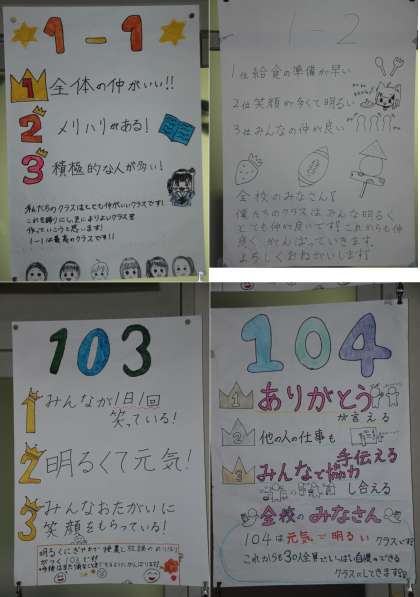 1-1
1 全体の仲がいい!!
2 メリハリがある!
3 積極的な人が多い!
私たちのクラスはとても仲がいいクラスです!
これを誇りにし、更によりよいクラスを
作っていこうと思います!
1-1は最高のクラスです!!
1-2
1位 給食の準備が早い
2位 笑顔が多くて明るい
3位 みんなの仲が良い
全校のみなさん!
僕たちのクラスはみんな明るく
とても仲が良いです!これからも仲
良く がんばっていきます。
よろしくおねがいします
103
1 みんなが1日1回
笑っている!
2 明るくて元気!
3 みんなおたがいに
笑顔をもらっている!
明るくにぎやかで 授業と放課のメリハリ
がつく103です!
104
1 ありがとう
が言える
2 他の人の仕事も
手伝える
3 みんなで協力
し合える
全校のみなさん
104は元気で明るいクラスです
これからも30人全員でいっぱい自慢のできる
クラスにしてきます